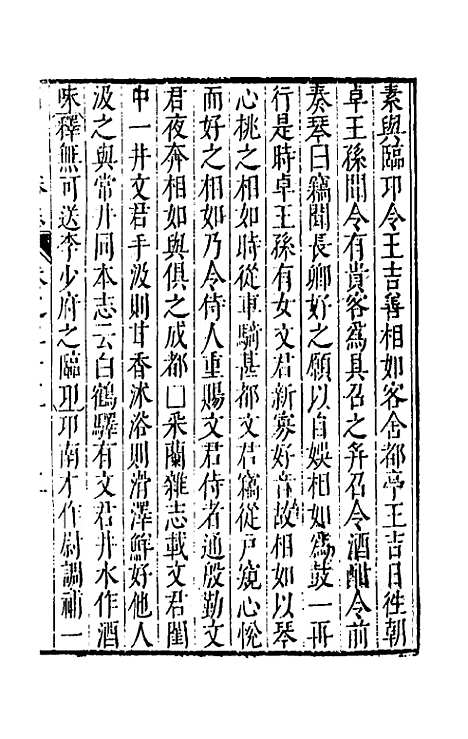 素與臨邛令王吉善相如客舍都亭王吉日徃朝
卓王孫聞令有貴客爲具召之并召令酒酣令前
奏琴曰竊聞長卿好之願以自娛相如爲鼓一再
行是時卓王孫有女文君新寡好音故相如以琴
心挑之相如時從車騎甚都文君竊從戶窺心悅
而好之相如乃令侍人重賜文君侍者通殷勤文
君夜奔相如與俱之成都□采蘭雜志載文君閨
中一井文君手汲則甘香沐浴則滑澤鮮好他人
汲之與常井同本志云白鶴驛有文君井水作酒
味釋無可送李少府之臨邛邛南才作尉調補一